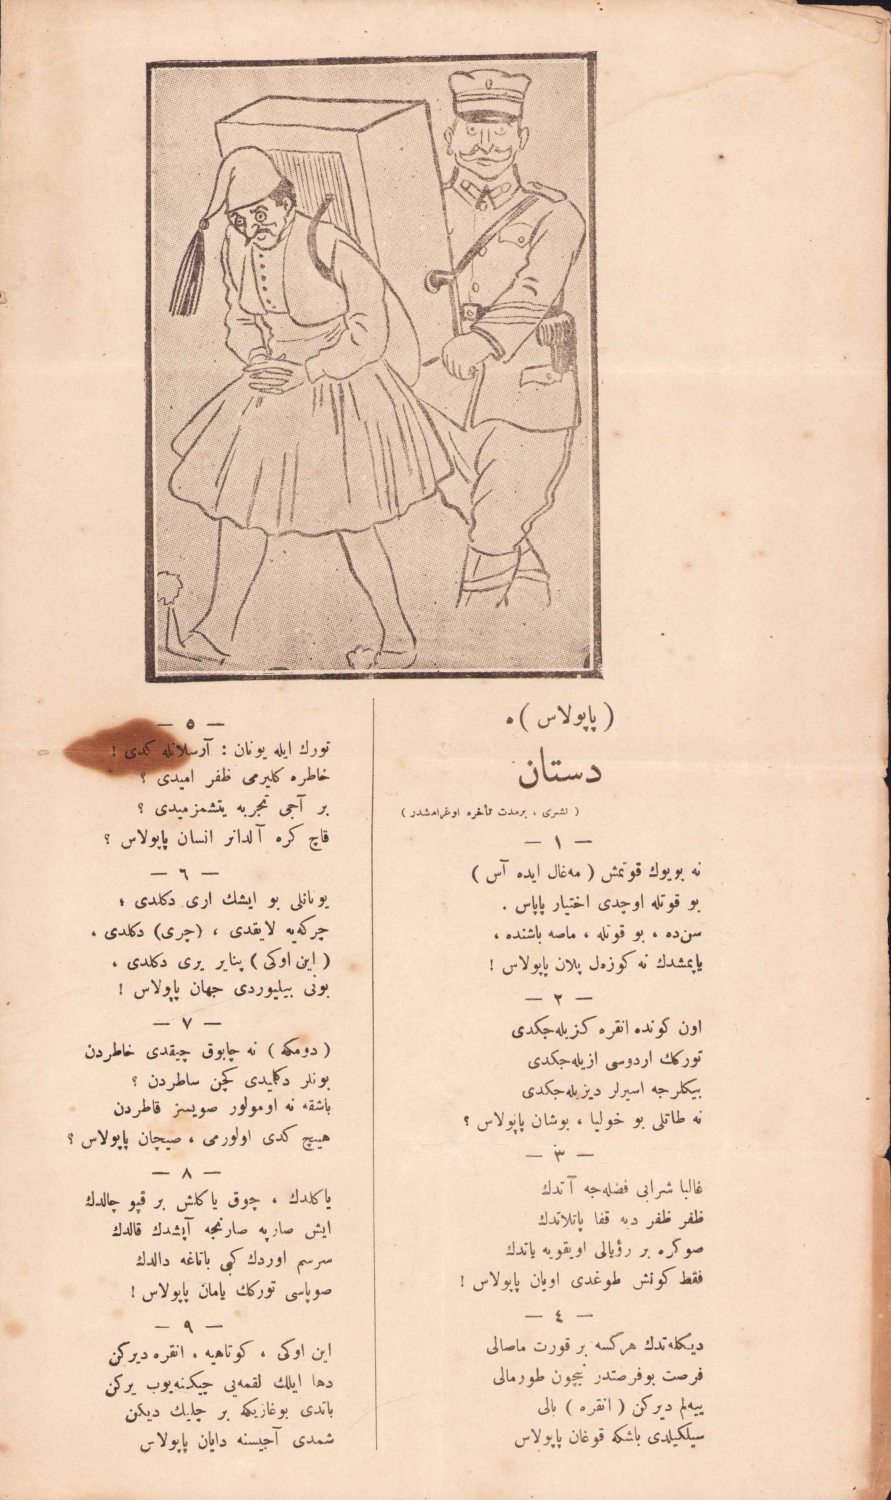 ( پاپولاس ) ه
دستان
( نشری ، برمدت تأخره اوغرامشدر )
— ١ —
نه بویوك قوتمش ( مه‌غال ایده آس )
بو قوتله اوچدی اختیار پاپاس .
سن‌ده ، بو قوتله ، ماصه باشنده ،
یاپمشدك نه كوزه‌ل پلان پاپولاس !
— ٢ —
اون كونده انقره كزیله‌جكدی
توركك اردوسی ازیله‌جكدی
بیكلرجه اسیرلر دیزیله‌جكدی
نه طاتلی بو خولیا ، بوشان پاپولاس ؟
— ٣ —
غالبا شرابی فضله‌جه آتدك
ظفر ظفر دیه قفا پاتلاتدك
صوكره بر رؤیالی اویقویه یاتدك
فقط كونش طوغدی اویان پاپولاس !
— ٤ —
دیكله‌تدك هركسه بر قورت ماصالی
فرصت بوفرصتدر نیچون طورمالی
ییه‌لم دیركن ( انقره ) بالی
سیلكیلدی باشكه قوغان پاپولاس
— ٥ —
تورك ایله یونان : آرسلانله كدی !
خاطره كلیرمی ظفر امیدی ؟
بر آجی تجربه یتشمزمیدی ؟
قاچ كره آلدانر انسان پاپولاس ؟
— ٦ —
یونانلی بو ایشك اری دكلدی ؛
چركه‌یه لایقدی ، (چری) دكلدی ،
( این اوكی ) پنایر یری دكلدی ،
بونی بیلیوردی جهان پاپولاس !
— ٧ —
( دومكه ) نه چابوق چیقدی خاطردن
بونلر دكلیدی كچن ساطردن ؟
باشقه نه اومولور صویسز قاطردن
هیچ كدی اولورمی ، صیچان پاپولاس ؟
— ٨ —
یاكلدك ، چوق یاكلش بر قپو چالدك
ایش صارپه صارنجه آپشدك قالدك
سرسم اوردك كبی باتاغه دالدك
صوپاسی توركك یامان پاپولاس !
— ٩ —
این اوكی ، كوتاهیه ، انقره دیركن
دها ایلك لقمه‌یی چیكنه‌یوب یركن
باتدی بوغازیكه بر چلیك دیكن
شمدی آجیسنه دایان پاپولاس